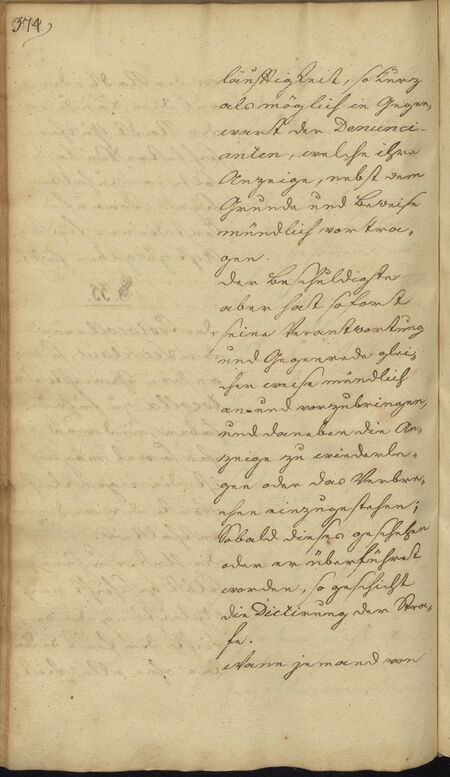 374.
läufftigkeit, so kurz
als möglich in Gegen¬
wart der Denunci-
anten, welche ihre
Anzeige, nebst dem
Grunde und Beweise
mündlich vortra¬
gen.
Der beschuldigte
aber hat sofort
seine Verantwortung
und Gegenrede glei¬
cher weise mündlich
an- und vorzubringen,
und daneben die An¬
zeige zu wiederle¬
gen oder das Verbre¬
chen einzugestehen;
Sobald dieses geschehen
oder er überführet
worden, so geschieht
die Dictirung der Stra¬
fe.
Wann jemand von